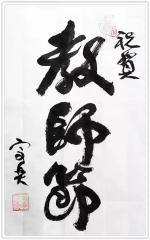 祝賀
教師節